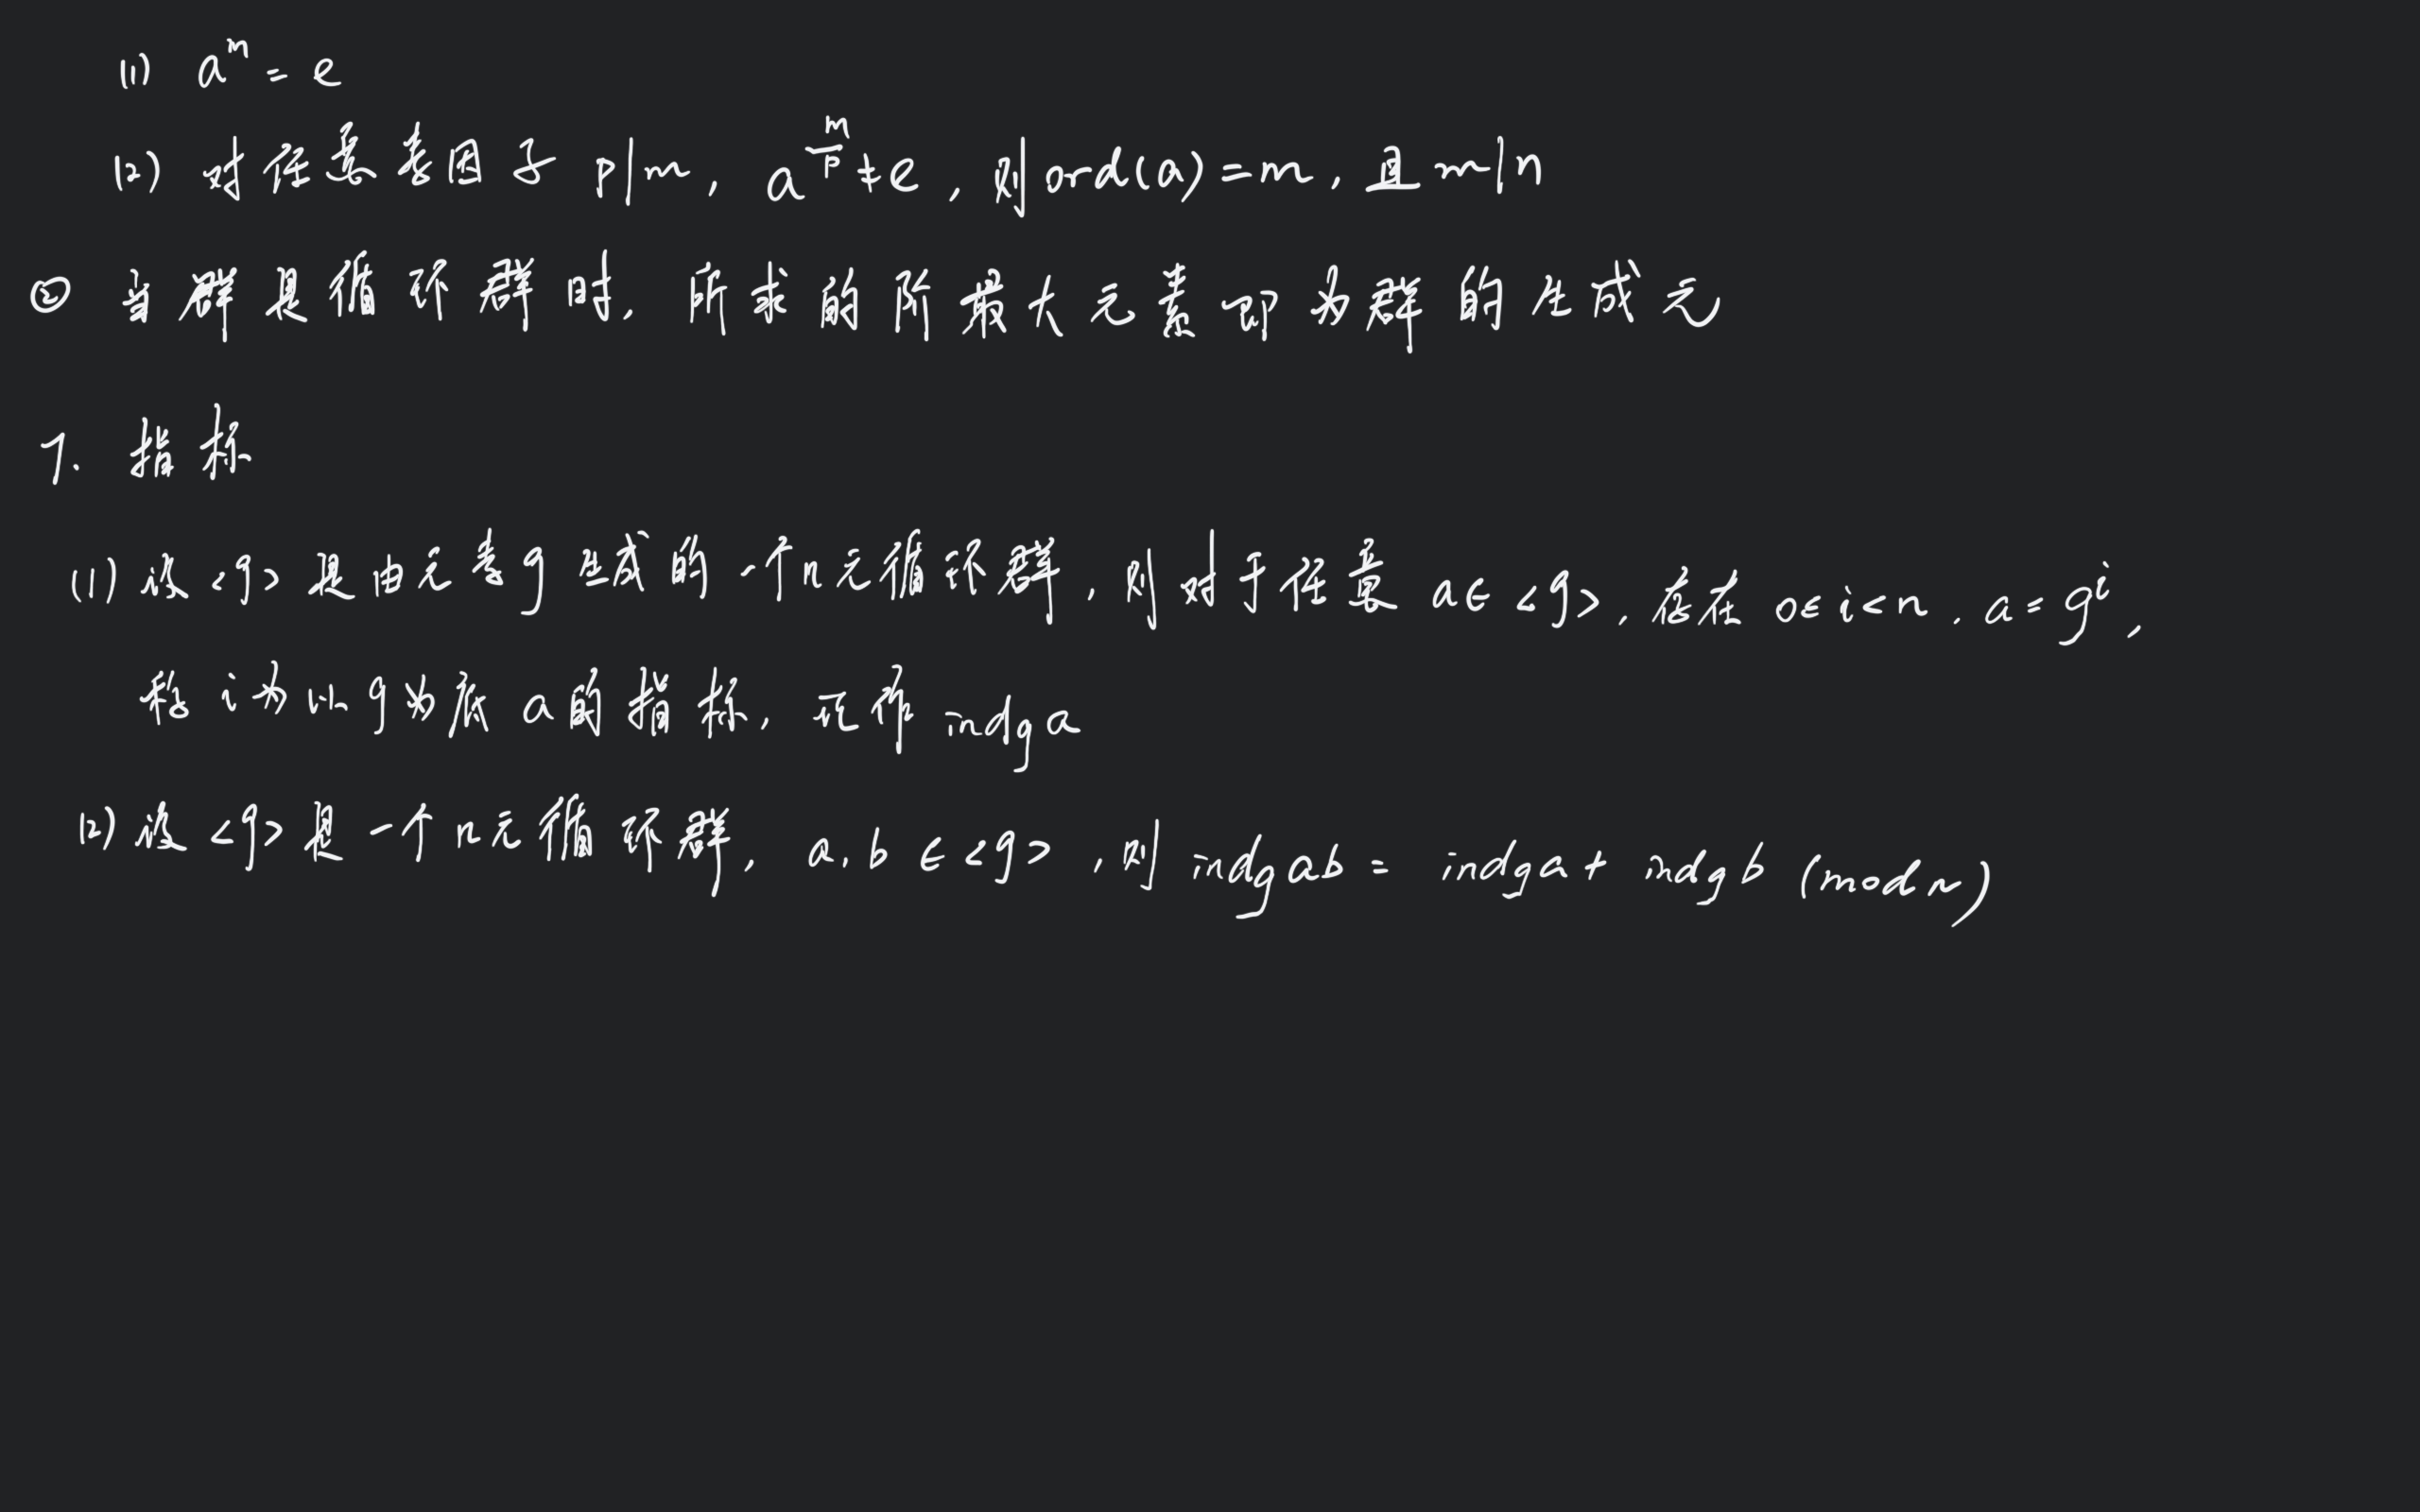 (1) a^m = e
(2) 对任意素因子 p|m, a^{m/p} ≠ e, 则ord(a)=m, 且m|n
② 当群是循环群时, 所求的阶最大元素即为群的生成元
7. 指标
(1) 设<g>是由元素g生成的一个n元循环群, 则对于任意 a∈<g>, 存在 0≤i<n, a=g^i,
称i为以g为底a的指标, 记作 ind_g a
(2) 设<g>是一个n元循环群, a,b∈<g>, 则 ind_g ab = ind_g a + ind_g b (mod n)